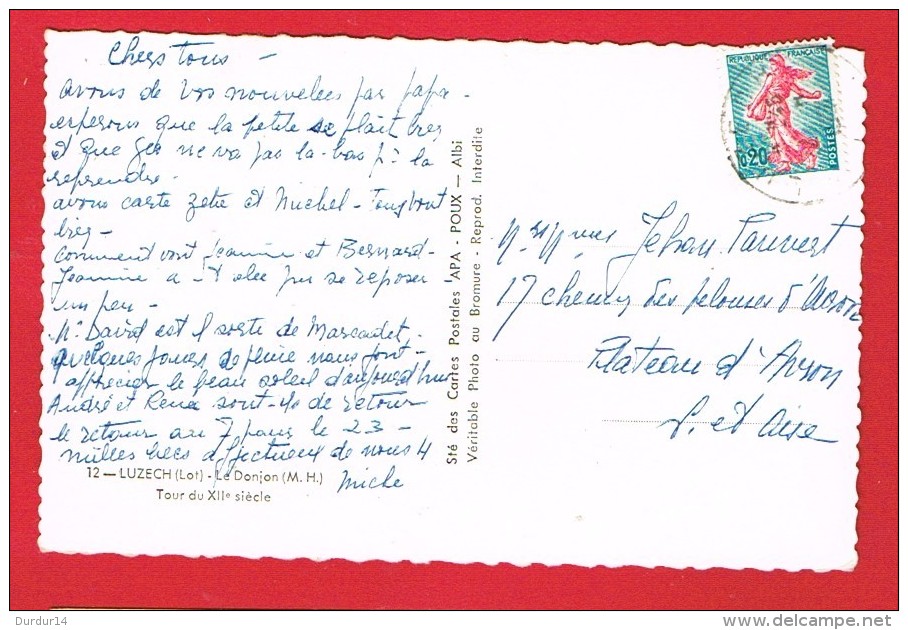 Chers tous -
avons de vos nouvelles par papa -
esperons que la petite se plait bien
et que ger ne va pas la-bas pr la
reprendre -
avons carte Zette et Michel - Tous vont
bien -
comment vont Jeannine et Bernard -
Jeannine a-t-elle pu se reposer
un peu -
Mr David est il sorti de Marcadet,
quelques jours de pluie nous font
apprécier le beau soleil d'aujourd'hui
André et René sont-ils de retour
le retour au 7 pour le 23 -
milles becs affectueux de nous 4
Miche
12 — LUZECH (Lot) - Le Donjon (M. H.)
Tour du XIIe siècle
Sté des Cartes Postales APA - POUX — Albi
Véritable Photo au Bromure - Reprod. Interdite
REPUBLIQUE FRANÇAISE
0,20
POSTES
Mr et Mme Jehan
17 chemin des pelouses d'Avron
Plateau d'Avron
S. et Oise
Durdur14